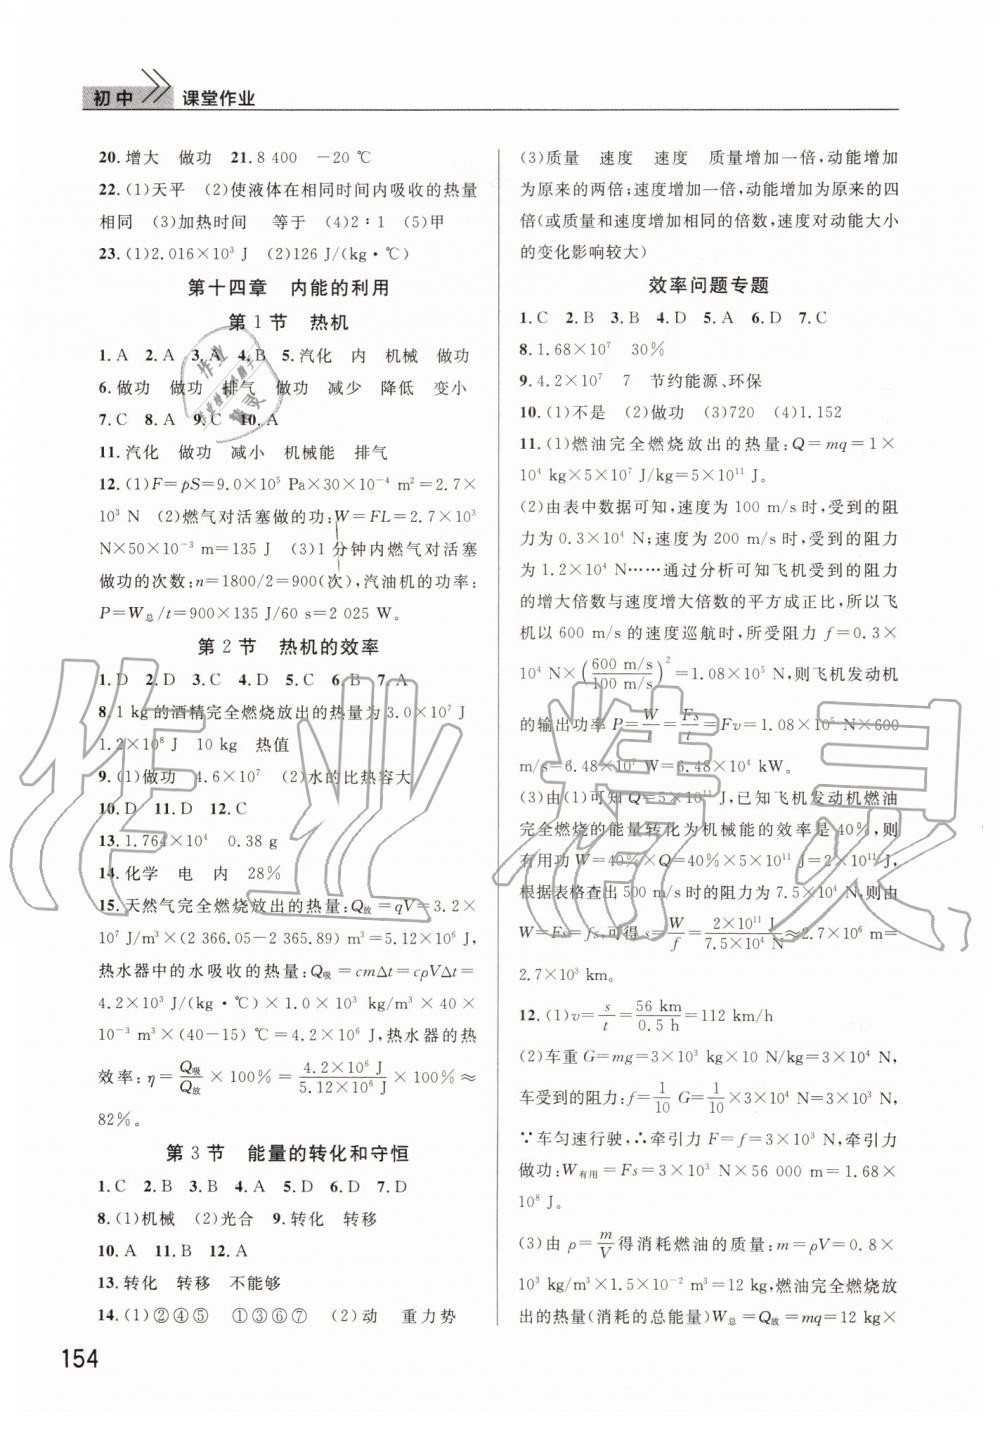 初中 课堂作业
20.增大 做功 21.8 400 -20 ℃
22.(1)天平 (2)使液体在相同时间内吸收的热量
相同 (3)加热时间 等于 (4)2∶1 (5)甲
23.(1)2.016×10³ J (2)126 J/(kg·℃)
第十四章 内能的利用
第1节 热机
1.A 2.A 3.A 4.B 5.汽化 内 机械 做功
6.做功 做功 排气 做功 减少 降低 变小
7.C 8.A 9.C 10.A
11.汽化 做功 减小 机械能 排气
12.(1)F=pS=9.0×10⁵ Pa×30×10⁻⁴ m²=2.7×
10³ N (2)燃气对活塞做的功:W=FL=2.7×10³
N×50×10⁻³ m=135 J (3)1 分钟内燃气对活塞
做功的次数:n=1800/2=900(次),汽油机的功率:
P=W总/t=900×135 J/60 s=2 025 W。
第2节 热机的效率
1.D 2.D 3.C 4.D 5.C 6.B 7.A
8.1 kg的酒精完全燃烧放出的热量为3.0×10⁷ J
1.2×10⁸ J 10 kg 热值
9.(1)做功 4.6×10⁷ (2)水的比热容大
10.D 11.D 12.C
13.1.764×10⁴ 0.38 g
14.化学 电 内 28%
15.天然气完全燃烧放出的热量:Q放=qV=3.2×
10⁷ J/m³×(2 366.05-2 365.89) m³=5.12×10⁶ J,
热水器中的水吸收的热量:Q吸=cmΔt=cρVΔt=
4.2×10³ J/(kg·℃)×1.0×10³ kg/m³×40×
10⁻³ m³×(40-15) ℃=4.2×10⁶ J,热水器的热
效率:η=Q吸/Q放×100%=4.2×10⁶ J/5.12×10⁶ J×100%≈
82%。
第3节 能量的转化和守恒
1.C 2.B 3.B 4.A 5.D 6.D 7.D
8.(1)机械 (2)光合 9.转化 转移
10.A 11.B 12.A
13.转化 转移 不能够
14.(1)②④⑤ ①③⑥⑦ (2)动 重力势
(3)质量 速度 速度 质量增加一倍,动能增加
为原来的两倍;速度增加一倍,动能增加为原来的四
倍(或质量和速度增加相同的倍数,速度对动能大小
的变化影响较大)
效率问题专题
1.C 2.B 3.B 4.D 5.A 6.D 7.C
8.1.68×10⁷ 30%
9.4.2×10⁷ 7 节约能源、环保
10.(1)不是 (2)做功 (3)720 (4)1.152
11.(1)燃油完全燃烧放出的热量:Q=mq=1×
10⁴ kg×5×10⁷ J/kg=5×10¹¹ J。
(2)由表中数据可知,速度为 100 m/s时,受到的阻
力为0.3×10⁴ N;速度为 200 m/s时,受到的阻力
为1.2×10⁴ N……通过分析可知飞机受到的阻力
的增大倍数与速度增大倍数的平方成正比,所以飞
机以 600 m/s的速度巡航时,所受阻力 f=0.3×
10⁴ N×(600 m/s/100 m/s)²=1.08×10⁵ N,则飞机发动机
的输出功率 P=W/t=Fs/t=Fv=1.08×10⁵ N×600
m/s=6.48×10⁷ W=6.48×10⁴ kW。
(3)由(1)可知 Q=5×10¹¹ J,已知飞机发动机燃油
完全燃烧的能量转化为机械能的效率是40%,则
有用功 W=40%×Q=40%×5×10¹¹ J=2×10¹¹ J,
根据表格查出500 m/s时的阻力为 7.5×10⁴ N,则由
W=Fs=fs,可得 s=W/f=2×10¹¹ J/7.5×10⁴ N≈2.7×10⁶ m=
2.7×10³ km。
12.(1)v=s/t=56 km/0.5 h=112 km/h
(2)车重 G=mg=3×10³ kg×10 N/kg=3×10⁴ N,
车受到的阻力:f=1/10 G=1/10×3×10⁴ N=3×10³ N,
∵车匀速行驶,∴牵引力 F=f=3×10³ N,牵引力
做功:W有用=Fs=3×10³ N×56 000 m=1.68×
10⁸ J。
(3)由 ρ=m/V得消耗燃油的质量:m=ρV=0.8×
10³ kg/m³×1.5×10⁻² m³=12 kg,燃油完全燃烧放
出的热量(消耗的总能量)W总=Q放=mq=12 kg×
154
作业精灵